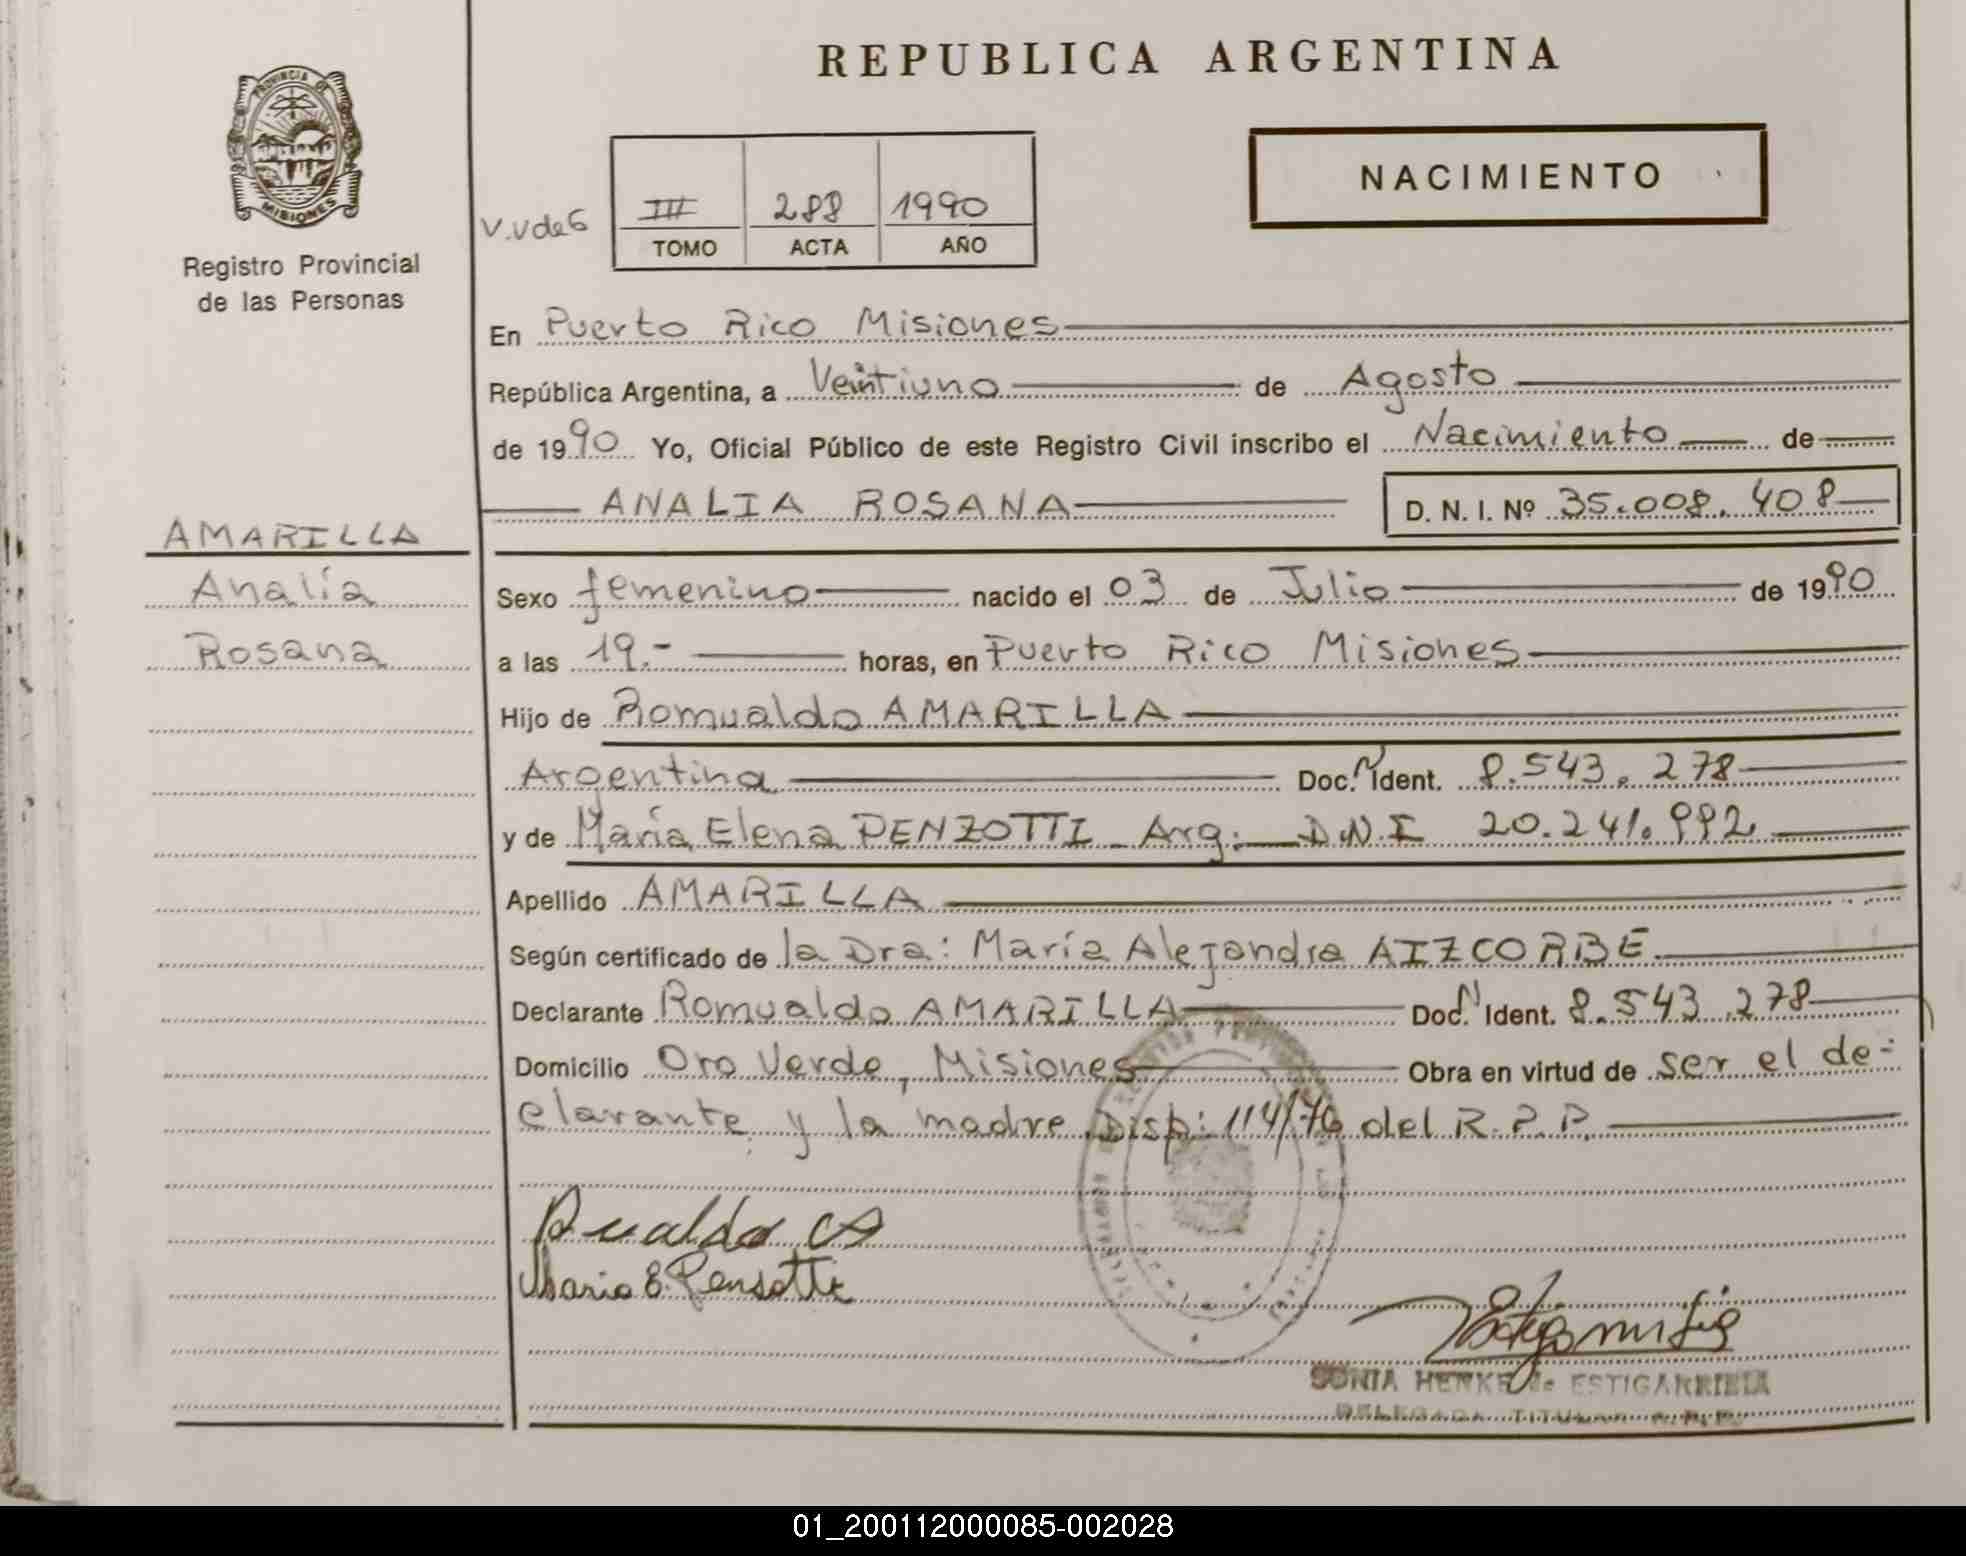 REPUBLICA ARGENTINA
PROVINCIA DE
MISIONES
Registro Provincial
de las Personas
V.Vde6
III 288 1990
TOMO ACTA AÑO
NACIMIENTO
En Puerto Rico Misiones
República Argentina, a Veintiuno de Agosto
de 1990 Yo, Oficial Público de este Registro Civil inscribo el Nacimiento de
ANALIA ROSANA D. N. I. Nº 35.008.408
AMARILLA
Analía
Rosana
Sexo femenino nacido el 03 de Julio de 1990
a las 19.- horas, en Puerto Rico Misiones
Hijo de Romualdo AMARILLA
Argentina Doc. N Ident. 8.543.278
y de María Elena PENZOTTI - Arg. D.N.I 20.241.992
Apellido AMARILLA
Según certificado de la Dra: María Alejandra AIZCORBE
Declarante Romualdo AMARILLA Doc. N Ident. 8.543.278
Domicilio Oro Verde, Misiones Obra en virtud de ser el de-
clarante y la madre Disp: 114/76 del R.P.P.
Maria E. Pensotti
SONIA HENKE de ESTIGARRIBIA
DELEGADA TITULAR R.P.P.
01_200112000085-002028